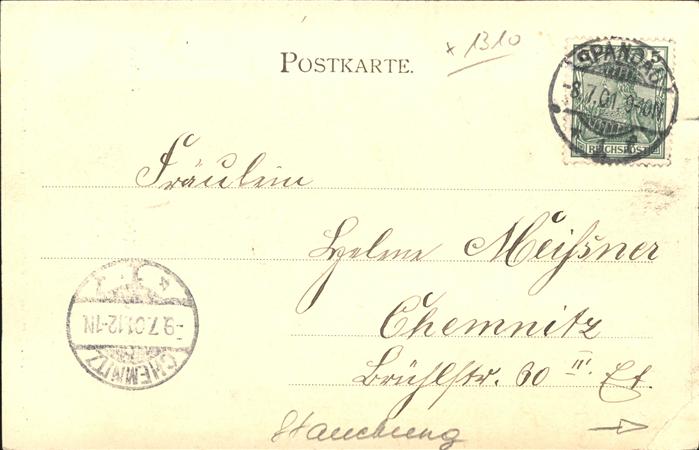 x 1310
POSTKARTE.
5
SPANDAU
-8.7.01. 9-10N
REICHSPOST
Fräulein
Helene Meißner
Chemnitz
Brühlstr. 60 III. Et.
-9.7.01.12-1N
CHEMNITZ
Stauchung